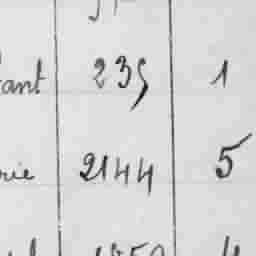 ant 235 1
rie 2144 5